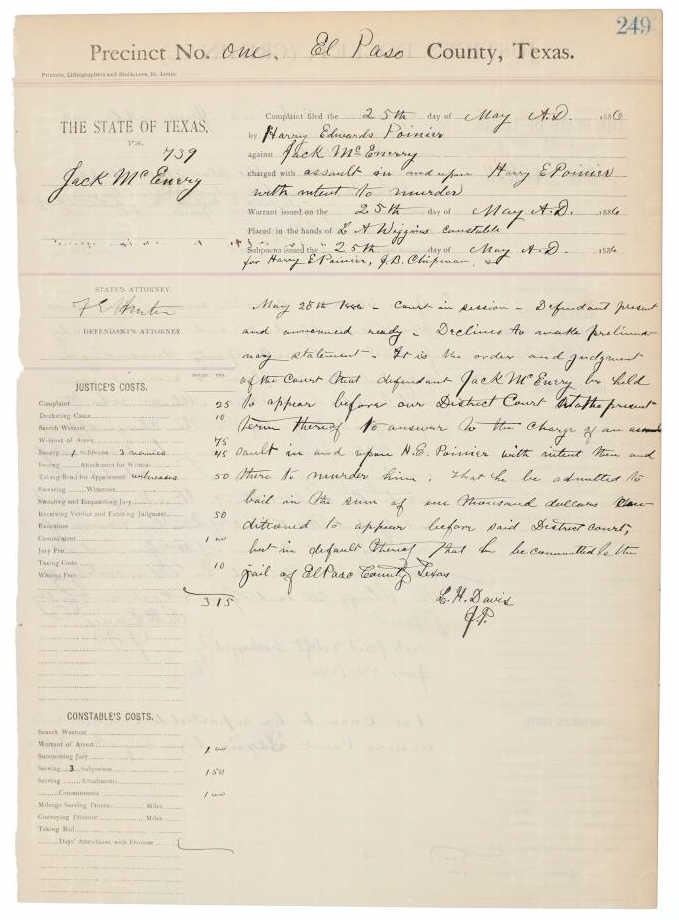 249
Precinct No. One, El Paso County, Texas.
THE STATE OF TEXAS,
vs. 739
Jack McEnery
Complaint filed the 25th day of May A.D. 1886
by Harry Edwards Poinier
against Jack McEnerry
charged with assault in and upon Harry E Poinier
with intent to murder
Warrant issued on the 25th day of May A.D. 1886
Placed in the hands of L A Wiggins constable
Subpoena issued the 25th day of May A.D. 1886
for Harry E Poinier, J.B. Chipman,
STATE'S ATTORNEY.
DEFENDANT'S ATTORNEY
May 28th 1886 - Court in session - Defendant present
and announced ready - Declines to make prelimi-
nary statement - It is the order and judgment
of the Court that defendant Jack McEnery be held
to appear before our District Court at the present
term thereof to answer to the charge of an as
sault in and upon H.E. Poinier with intent then and
there to murder him. That he be admitted to
bail in the sum of one thousand dollars con-
ditioned to appear before said District Court,
but in default thereof that he be committed to the
jail of El Paso County Texas
L. H. Davis
J.P.
JUSTICE'S COSTS.
Complaint 25
Docketing Cause 10
Search Warrant
Warrant of Arrest 75
45
Taking Bond for Appearance witnesses 50
Swearing Witnesses
Swearing and Empaneling Jury
Receiving Verdict and Entering Judgment 50
Execution
Commitment 1 00
Jury Fee
Taxing Costs 10
Witness Fees
3 15
CONSTABLE'S COSTS.
Search Warrant
Warrant of Arrest 1 00
Summoning Jury
Serving 3 Subpoenas 1 50
Serving Attachments
Commitments 1 00
Mileage Serving Process Miles
Conveying Prisoner Miles
Taking Bail
Days' Attendance with Prisoner